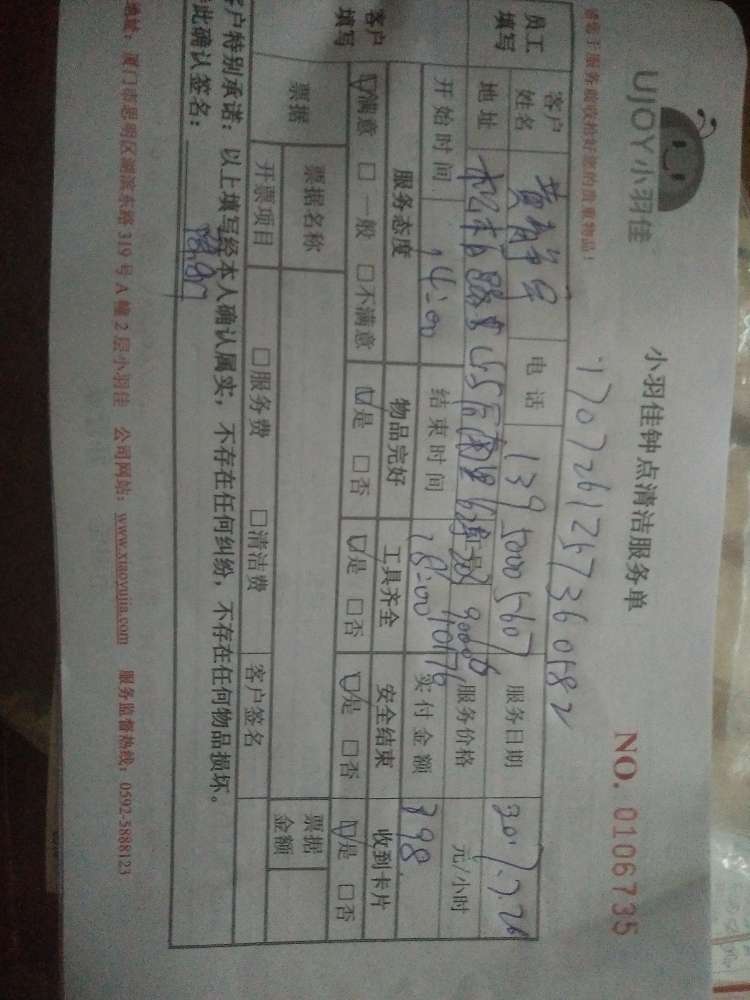 UJOY小羽佳
小羽佳钟点清洁服务单
NO. 0106735
请您于服务前收拾好您的贵重物品!
员工填写
客户姓名
电话
139 5000 5607
服务日期
2017.7.26
地址
服务价格
元/小时
开始时间
14:00
结束时间
18:00
实付金额
398
客户填写
服务态度
物品完好
工具齐全
安全结束
收到卡片
☑满意 □一般 □不满意
☑是 □否
☑是 □否
☑是 □否
☑是 □否
票据
票据名称
票据金额
开票项目
□服务费
□清洁费
客户签名
客户特别承诺:以上填写经本人确认属实,不存在任何纠纷,不存在任何物品损坏。
特此确认签名:
地址:厦门市思明区湖滨东路319号A幢2层小羽佳 公司网站:www.xiaoyujia.com 服务监督热线:0592-5888123